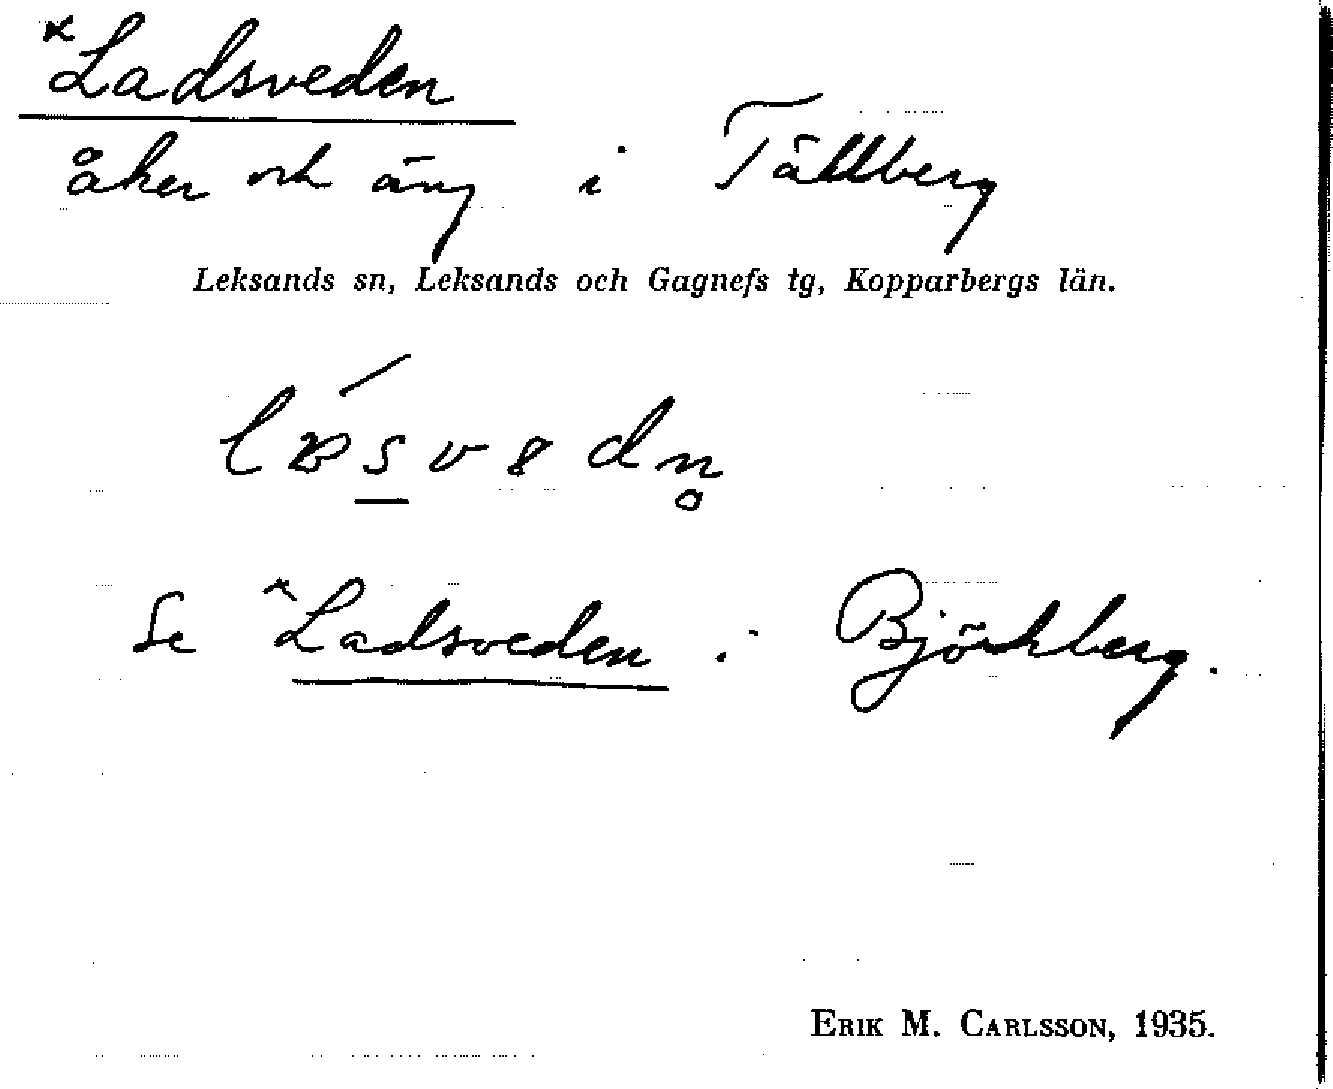 *Ladsveden
åker och äng i Tällberg
Leksands sn, Leksands och Gagnefs tg, Kopparbergs län.
Se *Ladsveden i Björkberg.
ERIK M. CARLSSON, 1935.